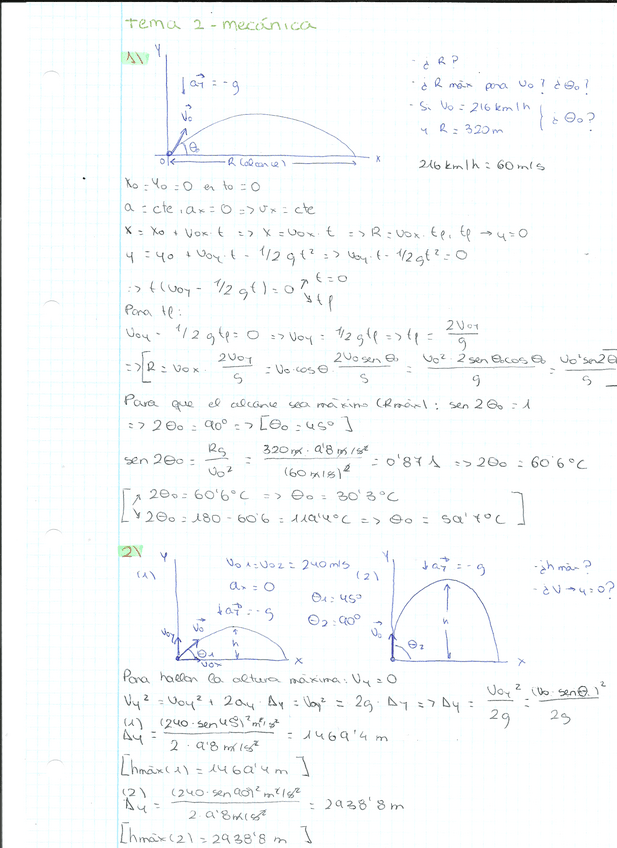 Tema 2 - mecánica
1)
Y
↓ a⃗T = -g
v⃗o
θo
0 R (alance) x
- ¿R?
- ¿R máx para vo? ¿θo?
- Si vo = 216 km/h
y R = 320 m } ¿θo?
216 km/h = 60 m/s
xo = yo = 0 en to = 0
a = cte, ax = 0 => vx = cte
x = xo + vox · t => x = vox · t => R = vox · tf, tf → y = 0
y = yo + voy · t - 1/2 g t² => voy · t - 1/2 g t² = 0
=> t (voy - 1/2 g t) = 0 ↗ t = 0 ↘ tf
Para tf:
voy - 1/2 g tf = 0 => voy = 1/2 g tf => tf = 2voy / g
=> [R = vox · 2voy/g = vo · cosθ · 2vo senθo/g = vo² · 2 senθo cosθo/g = vo² sen2θ/g
Para que el alcance sea máximo (Rmáx): sen 2θo = 1
=> 2θo = 90° => [θo = 45°]
sen 2θo = Rg/vo² = 320 m · 9'8 m/s² / (60 m/s)² = 0'871 => 2θo = 60'6°C
[ ↗ 2θo = 60'6°C => θo = 30'3°C
↘ 2θo = 180 - 60'6 = 119'4°C => θo = 59'7°C ]
2)
(1)
Y
vo1 = vo2 = 240 m/s
ax = 0
↓ a⃗T = -g
θ1 = 45°
θ2 = 90°
voy
v⃗o
θ1
vox
h
x
(2)
Y
↓ a⃗T = -g
v⃗o
θ2
h
x
- ¿h máx?
- ¿V → y = 0?
Para hallar la altura máxima: Vy = 0
Vy² = voy² + 2ay · Δy = voy² = 2g · Δy => Δy = voy²/2g = (vo · senθ)²/2g
(1)
Δy = (240 · sen45)² m²/s² / 2 · 9'8 m/s² = 1469'4 m
[hmáx (1) = 1469'4 m]
(2)
Δy = (240 · sen 90)² m²/s² / 2 · 9'8 m/s² = 2938'8 m
[hmáx (2) = 2938'8 m]